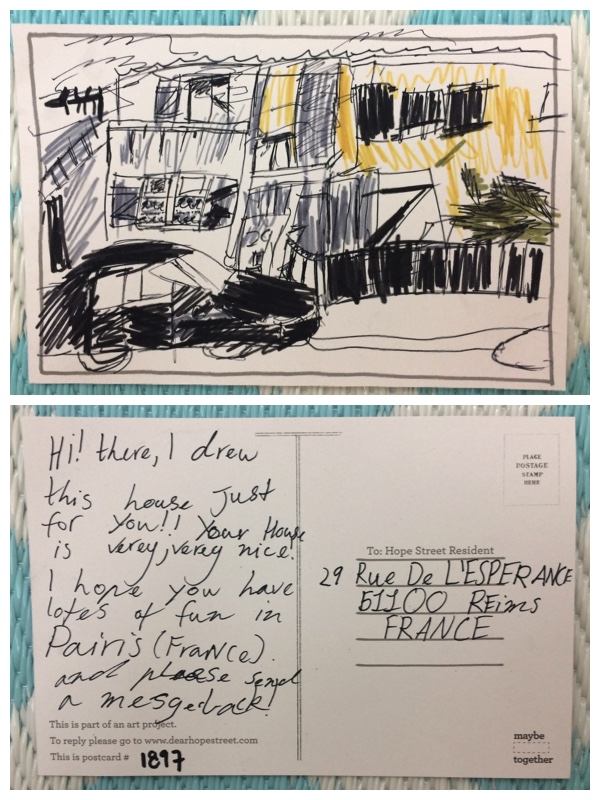 29
Hi! there, I drew
this house just
for You!! Your House
is verey, verey nice!
I hope you have
lotes of fun in
Pairis (FraNce).
and please send
a mesge back!
This is part of an art project.
To reply please go to www.dearhopestreet.com
This is postcard # 1897
PLACE
POSTAGE
STAMP
HERE
To: Hope Street Resident
29 Rue De L'ESPERANCE
51100 REims
FRANCE
maybe
together